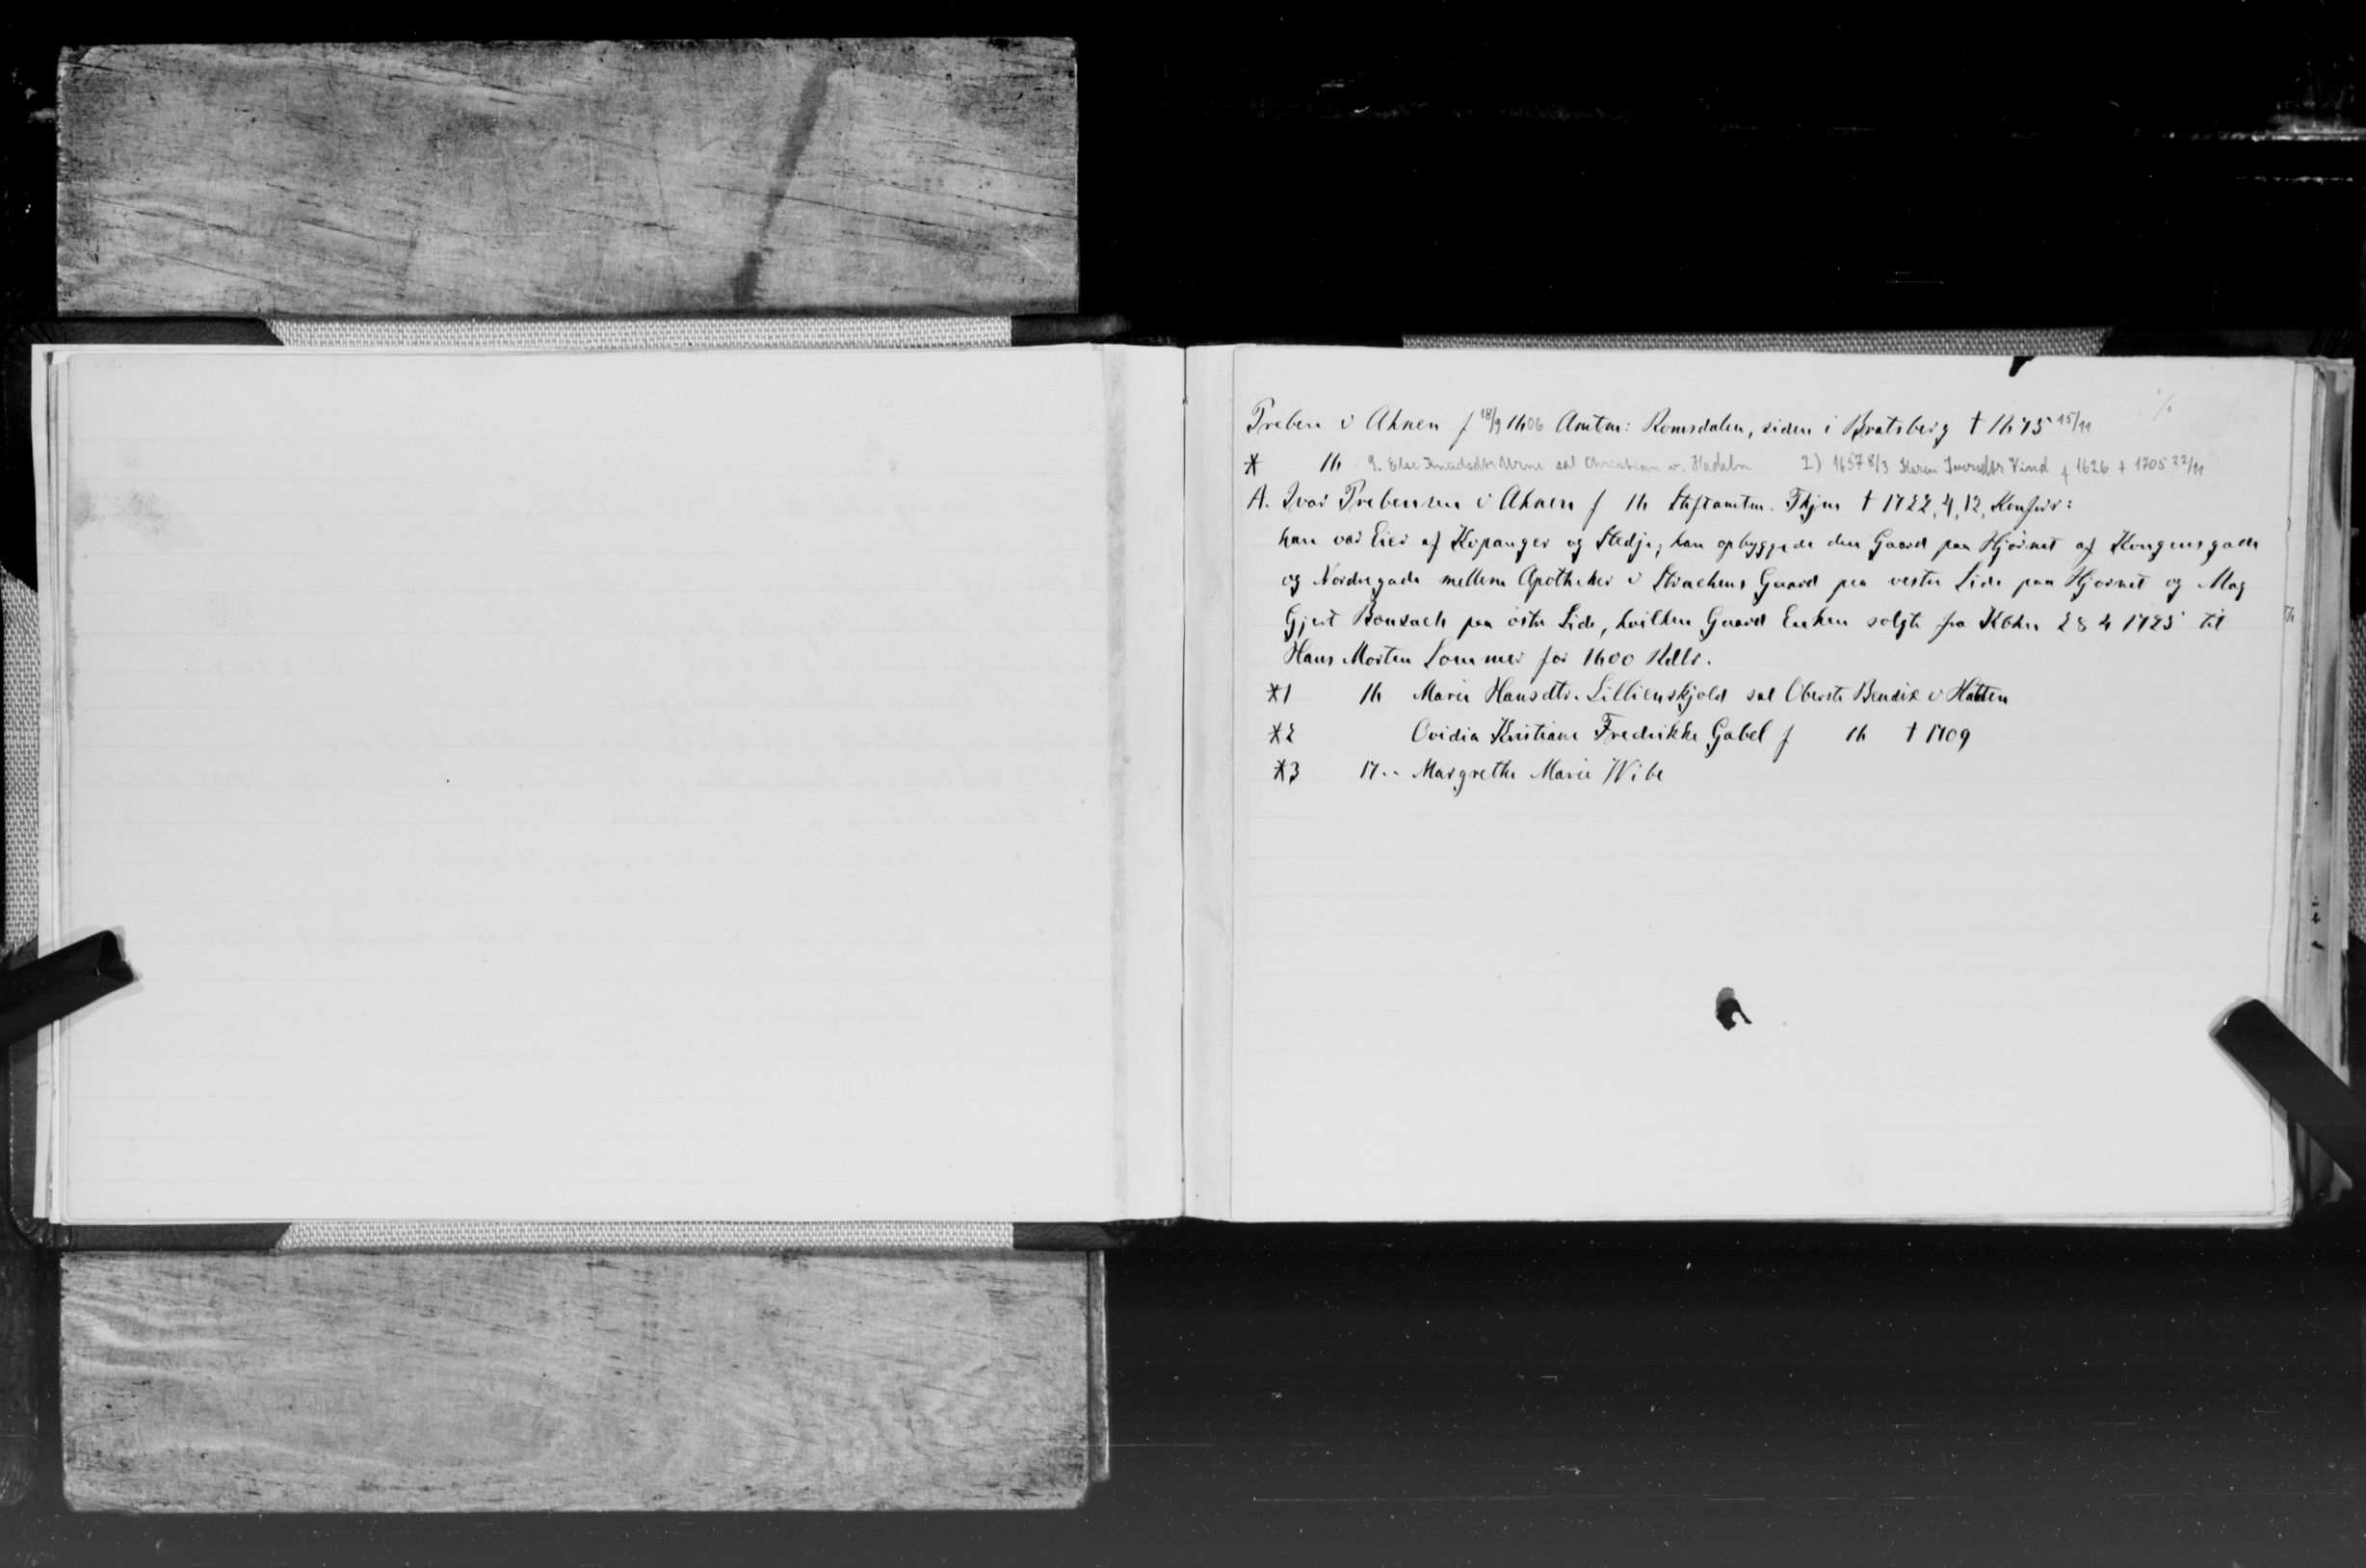 Preben v Ahnen f 18/9 1606 Amtm: Romsdalen, siden i Bratsberg † 1675 15/11
* 16 1. Else Knudsdtr Urne sal Christian v. Hadeln 2) 1657 8/3 Karen Iversdtr Vind f 1626 † 1705 22/11
A. Ivar Prebensen v Ahnen f 16 Stiftamtm. Thjm † 1722, 4, 12, Konfsr:
han var Eier af Kopanger og Stedje; han opbyggede den Gaard paa Hjørnet af Kongensgade
og Nordregade mellem Apotheker v Strachens Gaard paa vestre Side paa Hjørnet og Mag
Gjert Bonsach paa østre Side, hvilken Gaard Enken solgte fra Kbhn 28 4 1725 til
Hans Morten Sommer for 1600 Rdlr.
*1 16 Marie Hansdtr. Lillienskjold sal Oberst Bendix v Hatten
*2 Ovidia Kristiane Fredrikke Gabel f 16 † 1709
*3 17.. Margrethe Marie Wibe